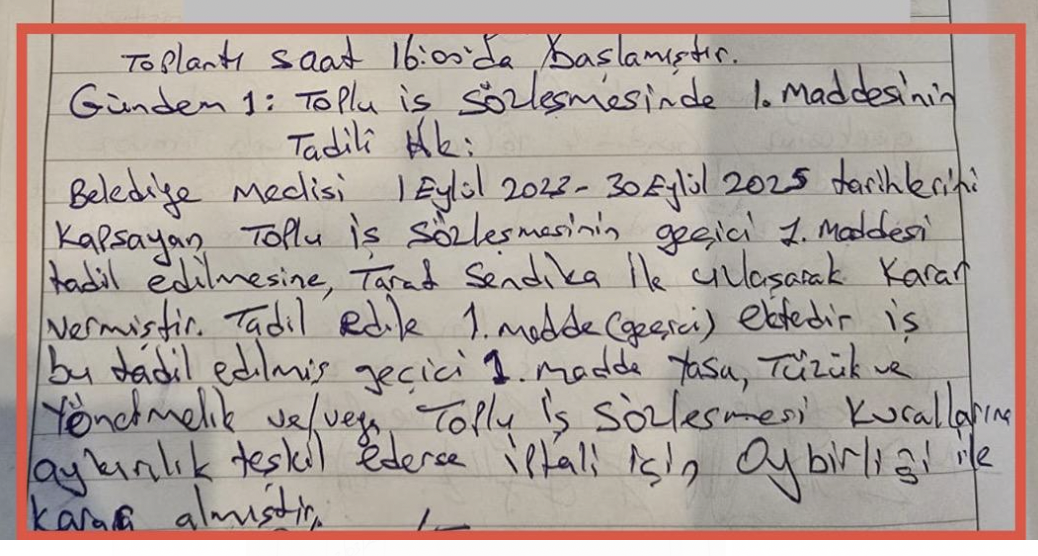 Toplantı saat 16:00'da başlamıştır.
Gündem 1: Toplu iş sözleşmesinde 1. Maddesinin
Tadili Hk:
Belediye Meclisi 1 Eylül 2023 - 30 Eylül 2025 tarihlerini
Kapsayan Toplu iş sözleşmesinin geçici 1. Maddesi
tadil edilmesine, Taraf Sendika ile uzlaşarak Karar
vermiştir. Tadil edile 1. madde (geçici) ektedir iş
bu tadil edilmiş geçici 1. madde Yasa, Tüzük ve
Yönetmelik ve/veya Toplu iş Sözleşmesi Kurallarına
aykırılık teşkil ederse iptali için Oybirliği ile
karar almıştır.